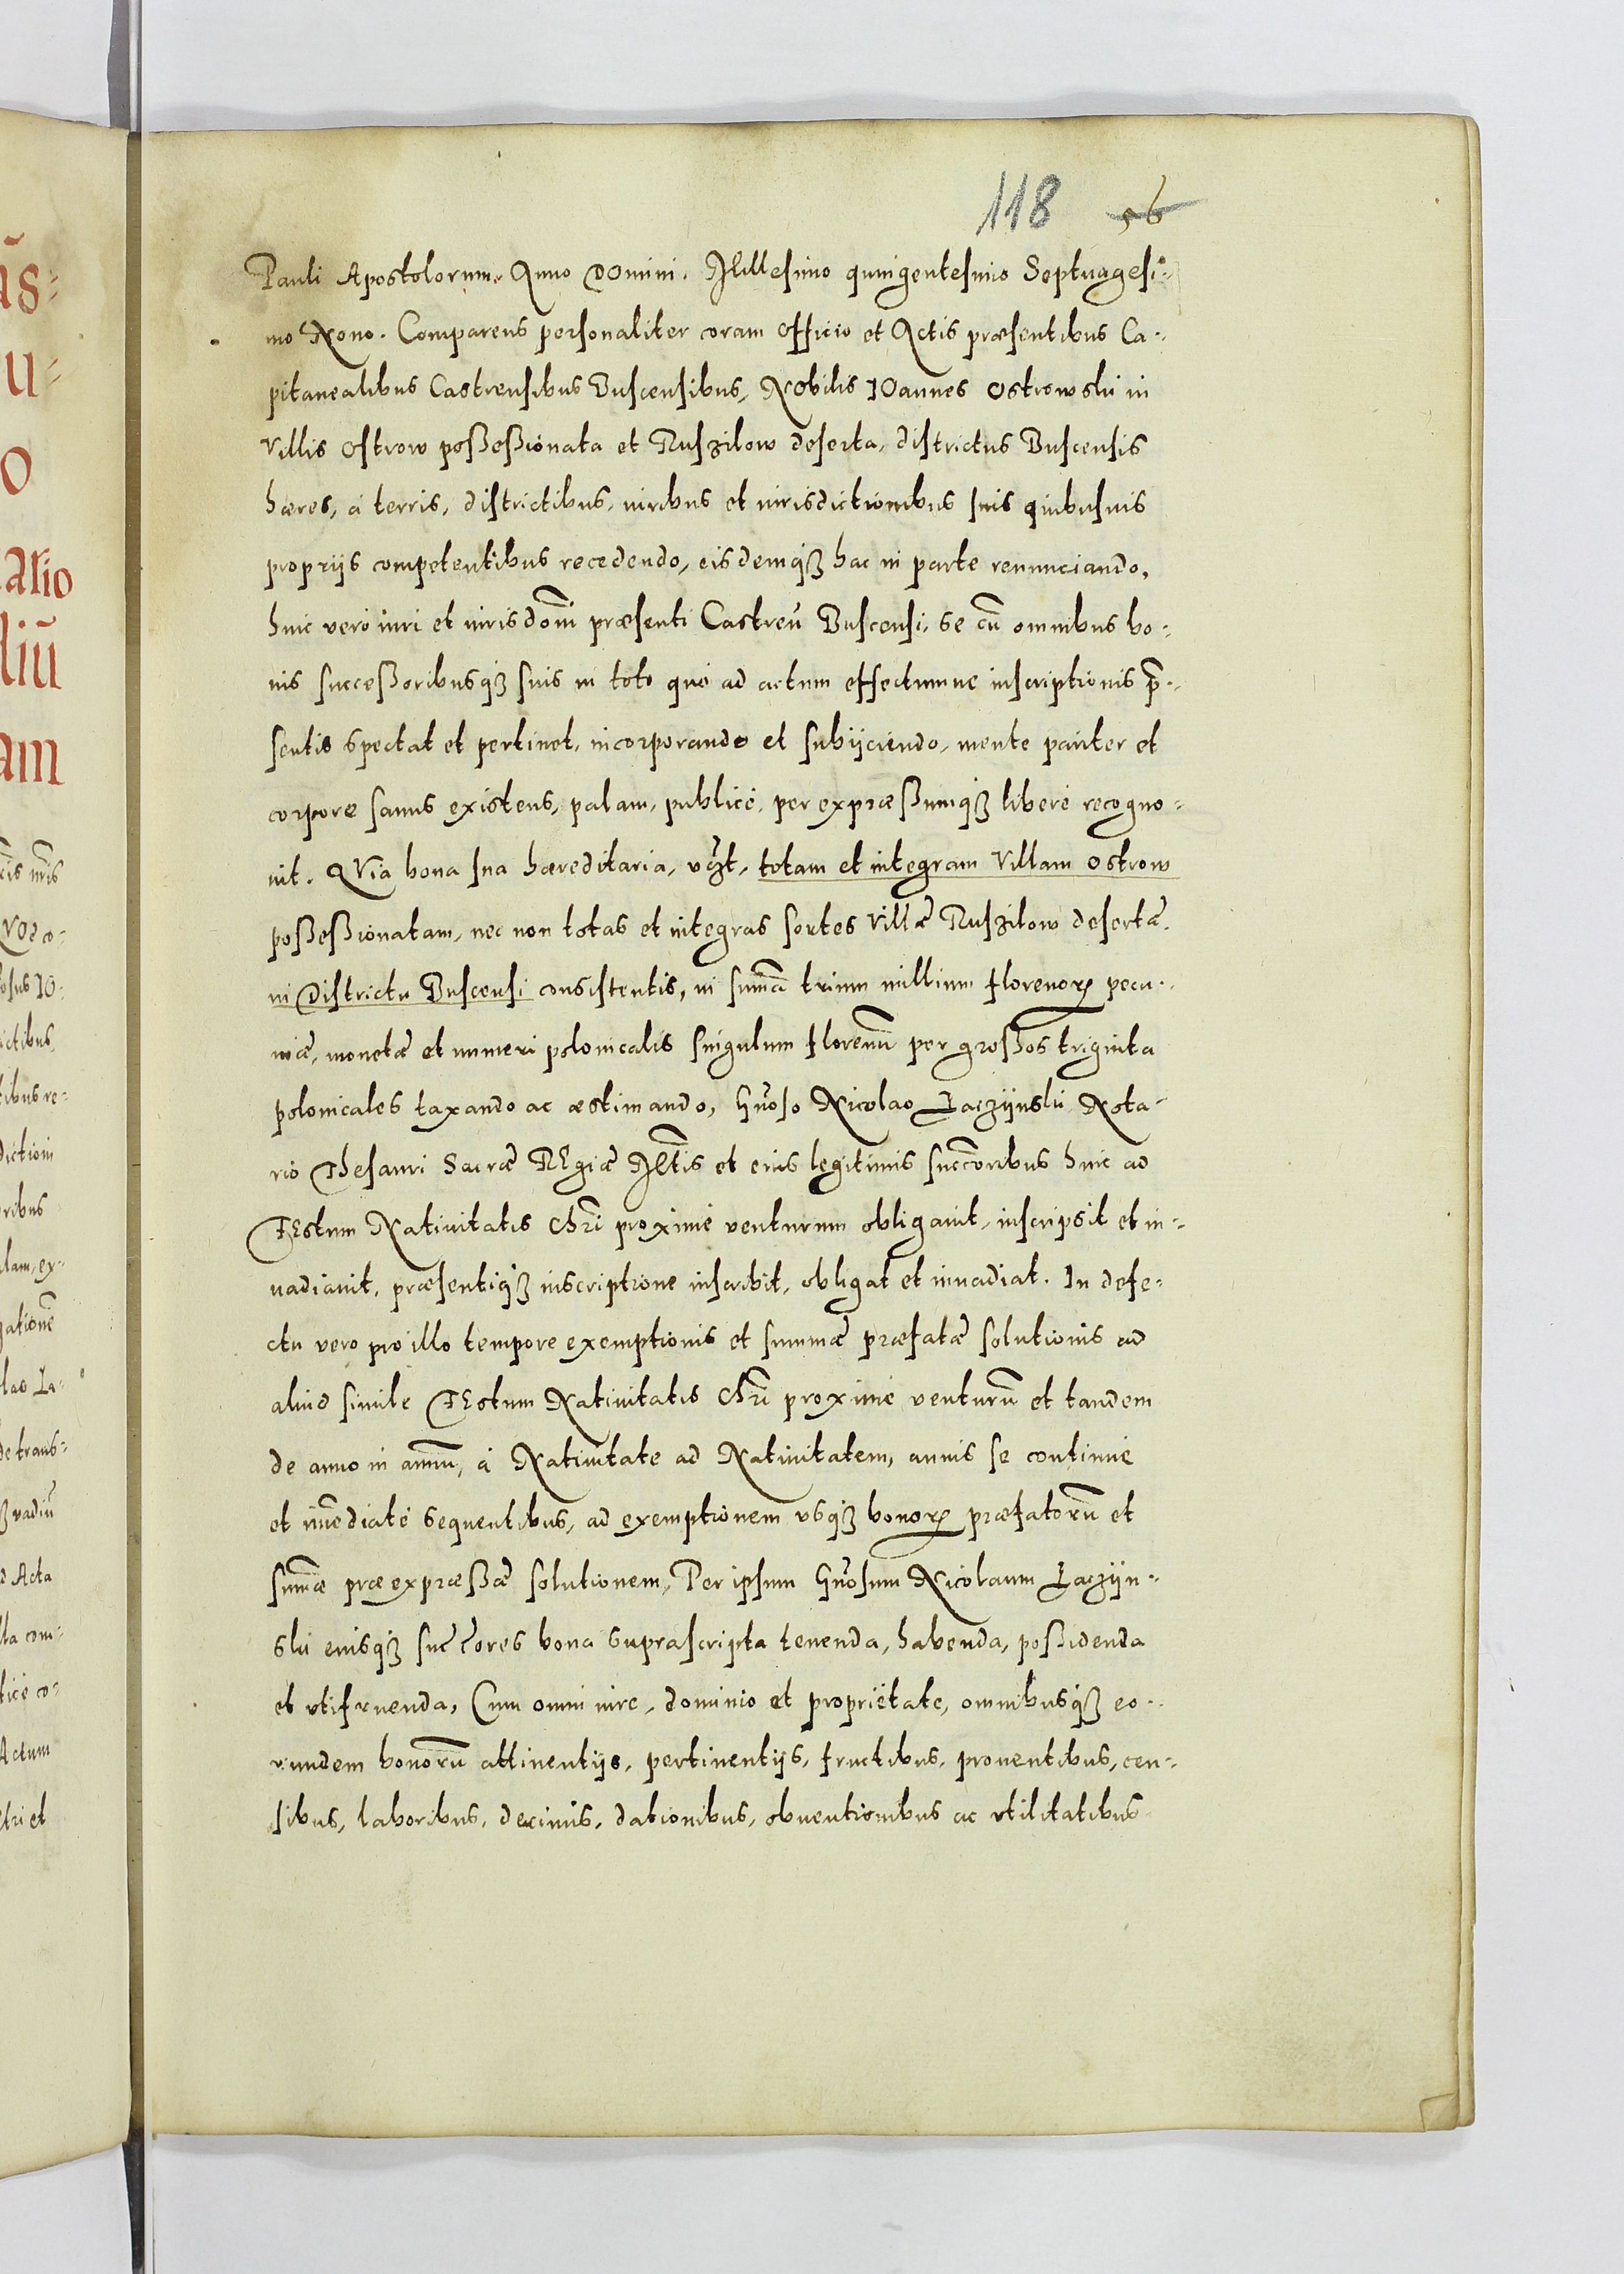 118 56
Pauli Apostolorum. Anno Domini. Millesimo quingentesimo Septuagesi-
mo Nono. Comparens personaliter coram officio et Actis præsentibus Ca-
pitanealibus Castrensibus Buscensibus, Nobilis IOannes Ostrowski in
Villis Ostrow poßeßionata et Ruszilow deserta, districtus Buscensis
hæres, à terris, districtibus, iuribus et iurisdictionibus suis quibusuis
proprijs competentibus recedendo, eisdemqȝ hac in parte renunciando,
huic vero iuri et iurisdoni præsenti Castreñ Buscensi, se cũ omnibus bo-
nis succeßoribusqȝ suis in toto quo ad actum effectumue inscriptionis præ-
sentis spectat et pertinet, incorporando et subijciendo, mente pariter et
corpore sanus existens, palam, publice, per expræßumqȝ libere recogno-
uit. QVia bona sua hæreditaria, vȝt, totam et integram Villam Ostrow
poßeßionatam, nec non totas et integras sortes Villæ Ruszilow desertæ
in Districtu Buscensi consistentis, in sumã trium millium florenorꝝ pecu-
niæ, monetæ et numeri polonicalis singulum florenũ per großos triginta
polonicales taxando ac æstimando, Gñoso Nicolao Laczijnski Nota-
rio Thesauri Sacræ REgiæ Mtis et eius legitimis succoribus hinc ad
FEstum Natiuitatis Chri proxime venturum obligauit, inscripsit et in-
uadiauit, præsentiqȝ inscriptione inscribit, obligat et inuadiat. In defe-
ctu vero pro illo tempore exemptionis et summæ præfatæ solutionis ad
aliud simile FEstum Natiuitatis Chri proxime venturũ et tandem
de anno in annũ, à Natiuitate ad Natiuitatem, annis se continue
et imediate sequentibus, ad exemptionem vsqȝ bonorꝝ præfatorũ et
sumæ præexpræßæ solutionem, Per ipsum Gñosum Nicolaum Laczijn-
ski eiusqȝ succores bona suprascripta tenenda, habenda, poßidenda
et vtifruenda, Cum omni iure, dominio et proprietate, omnibusqȝ eo-
rundem bonorũ attinentijs, pertinentijs, fructibus, prouentibus, cen-
sibus, laboribus, decimis, dationibus, obuentionibus ac vtilitatibus